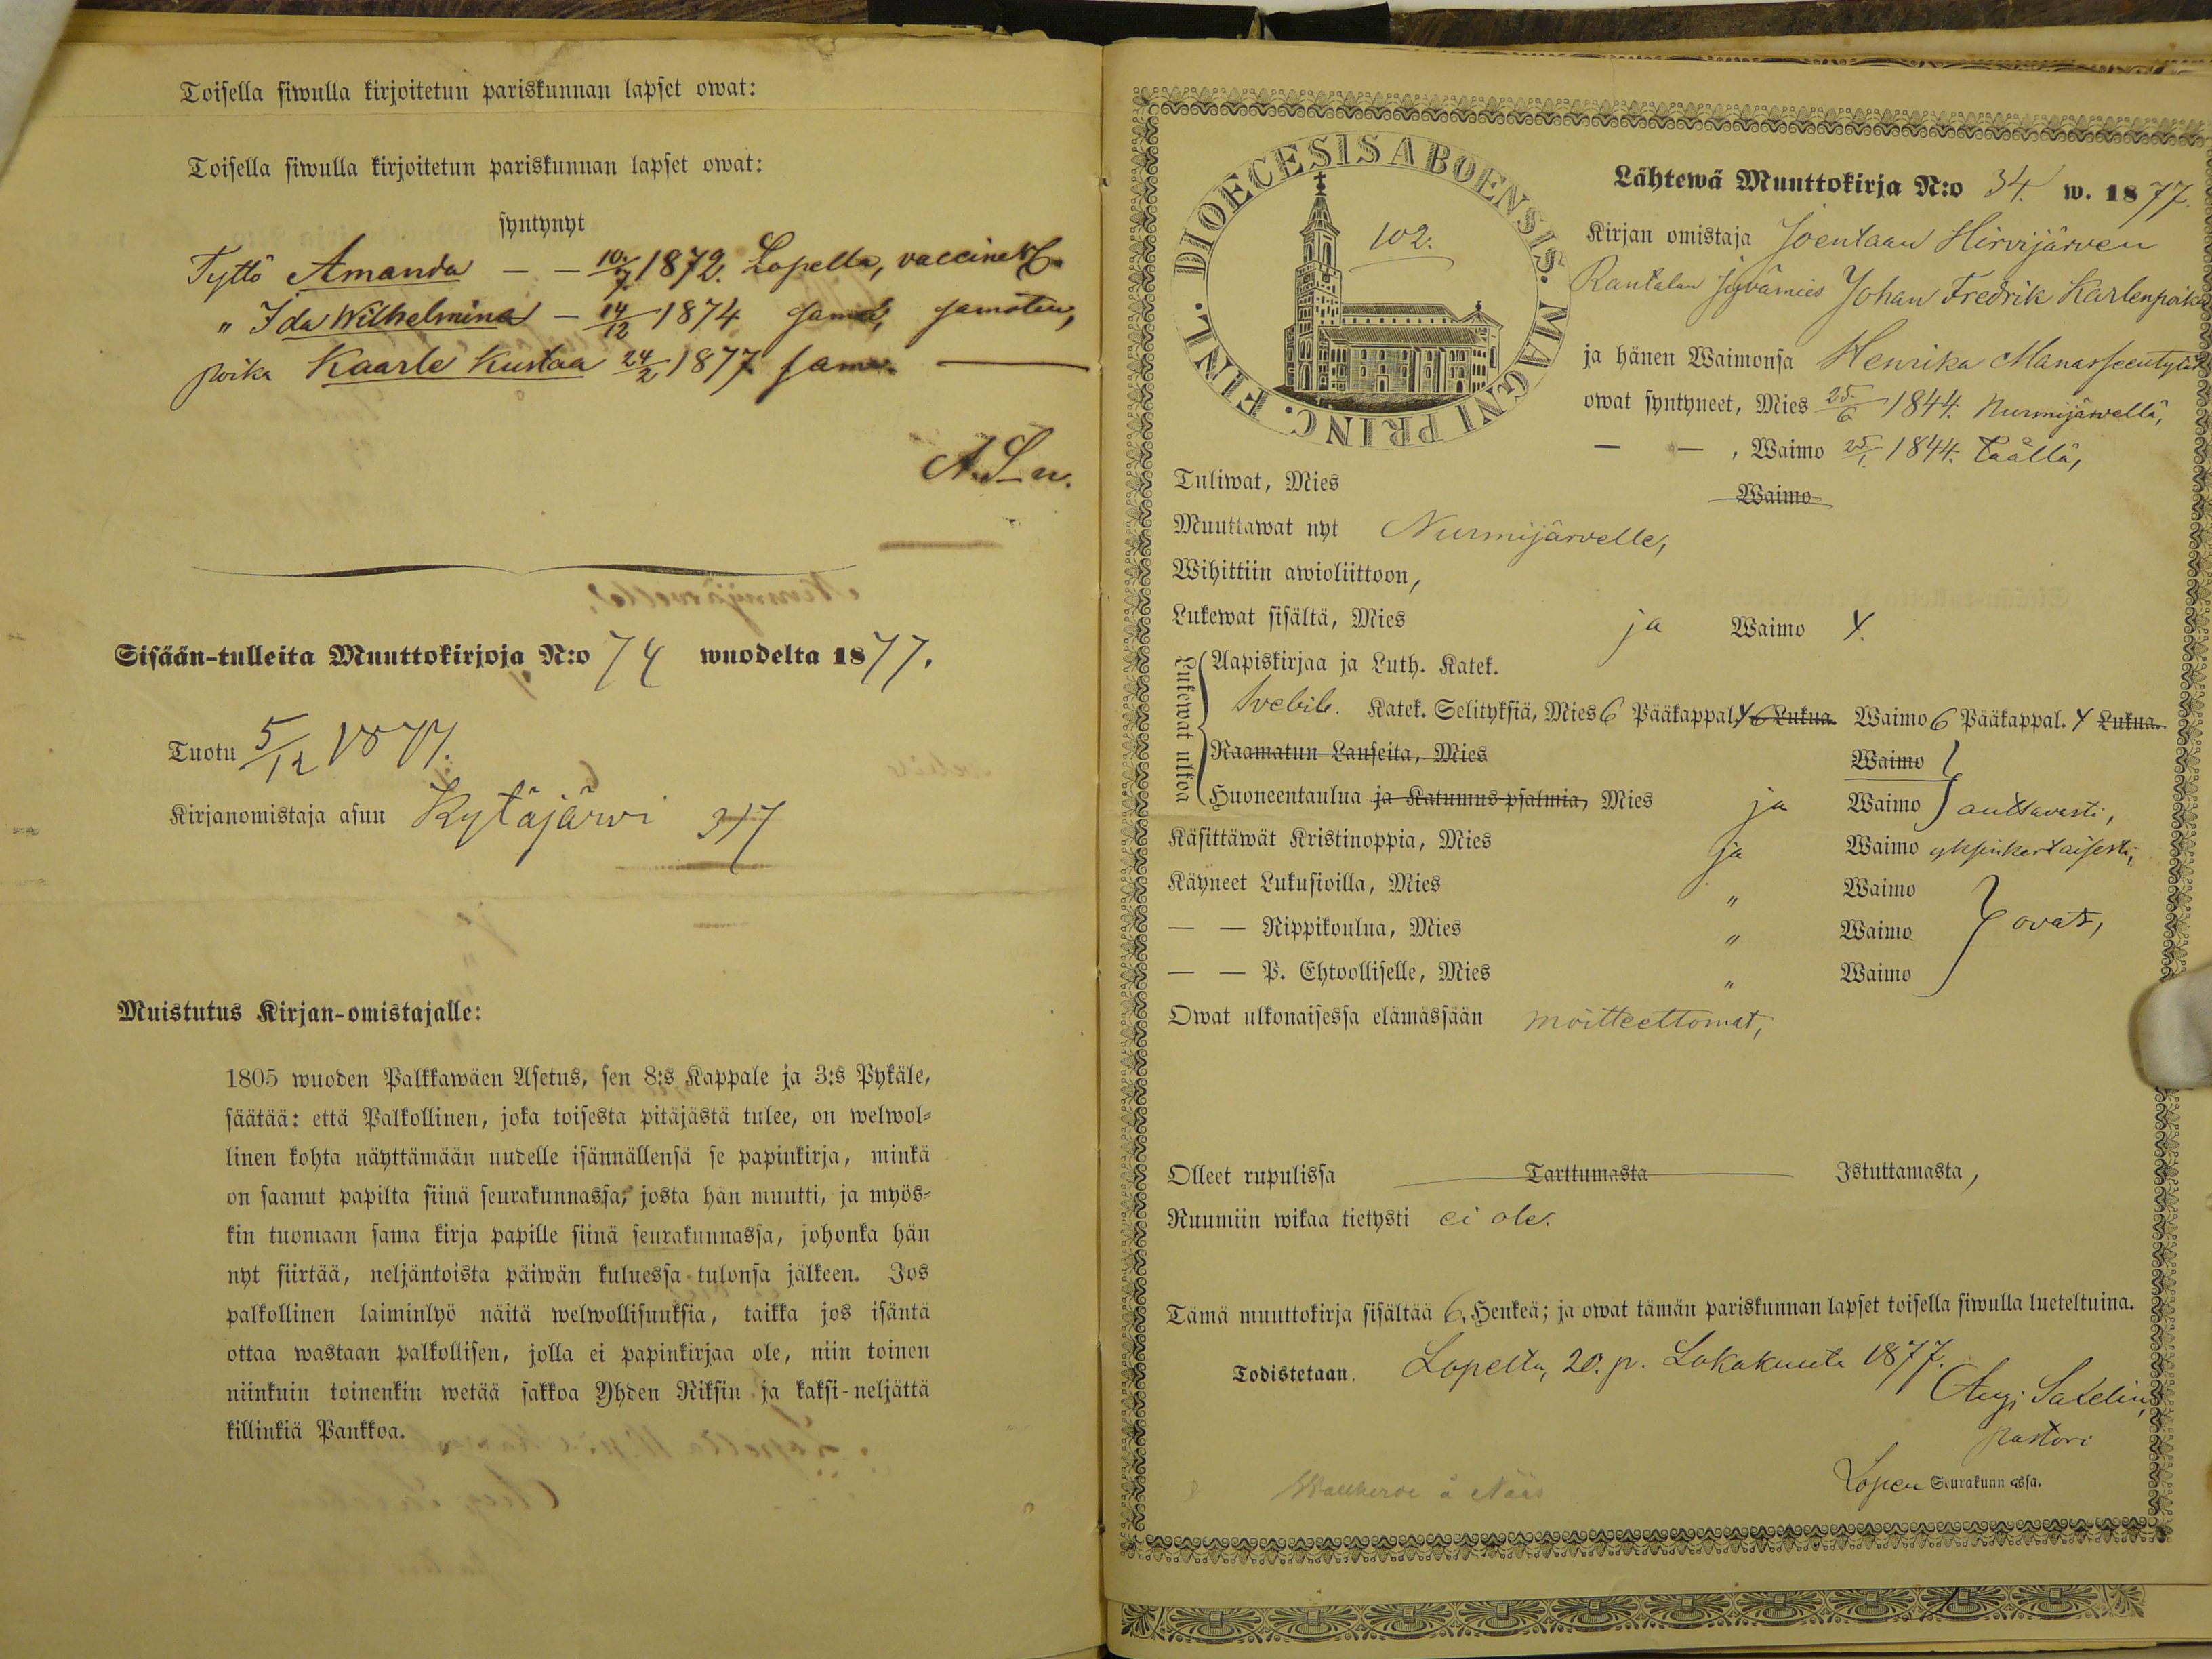 Toisella siwulla kirjoitetun pariskunnan lapset owat:
Toisella siwulla kirjoitetun pariskunnan lapset owat:
syntynyt
Tyttö Amanda — — 10/7 1872. Lopella, vaccinet
" Ida Wilhelmina — 14/12 1874 sama, samoten,
poika Kaarle Kustaa 24/2 1877 sama. —
A. S—n.
Sisään-tulleita Muuttokirjoja N:o 74 wuodelta 1877.
Tuotu 5/12 1877.
Kirjanomistaja asuu Kytäjärvi 317
Muistutus Kirjan-omistajalle:
1805 wuoden Palkkawäen Asetus, sen 8:s Kappale ja 3:s Pykäle,
säätää: että Palkollinen, joka toisesta pitäjästä tulee, on welwol-
linen kohta näyttämään uudelle isännällensä se papinkirja, minkä
on saanut papilta siinä seurakunnassa, josta hän muutti, ja myös-
kin tuomaan sama kirja papille siinä seurakunnassa, johonka hän
nyt siirtää, neljäntoista päiwän kuluessa tulonsa jälkeen. Jos
palkollinen laiminlyö näitä welwollisuuksia, taikka jos isäntä
ottaa wastaan palkollisen, jolla ei papinkirjaa ole, niin toinen
niinkuin toinenkin wetää sakkoa Yhden Riksin ja kaksi-neljättä
killinkiä Pankkoa.
DIOECESIS ABOENSIS. MAGNI PRINC. FINL.
102.
Lähtewä Muuttokirja N:o 34. w. 1877.
Kirjan omistaja Joentaan Hirvijärven
Rantalan jyvämies Johan Fredrik Karlenpoika
ja hänen Waimonsa Henrika Manasseentytär
owat syntyneet, Mies 25/6 1844. Nurmijärvellä,
— — , Waimo 25/1. 1844. täällä,
Tuliwat, Mies Waimo
Muuttawat nyt Nurmijärvelle,
Wihittiin awioliittoon,
Lukewat sisältä, Mies ja Waimo 4.
Lukewat ulkoa
Aapiskirjaa ja Luth. Katek.
Svebil. Katek. Selityksiä, Mies 6 Pääkappal. 4 6 Lukua. Waimo 6 Pääkappal. 4 Lukua.
Raamatun Lauseita, Mies Waimo
Huoneentaulua ja Katumus-psalmia, Mies ja Waimo auttavasti,
Käsittäwät Kristinoppia, Mies ja Waimo yksinkertaisesti,
Käyneet Lukusioilla, Mies " Waimo
— — Rippikoulua, Mies " Waimo ovat,
— — P. Ehtoolliselle, Mies " Waimo
Owat ulkonaisessa elämässään moitteettomat,
Olleet rupulissa Tarttumasta Istuttamasta,
Ruumiin wikaa tietysti ei ole.
Tämä muuttokirja sisältää 6. Henkeä; ja owat tämän pariskunnan lapset toisella siwulla lueteltuina.
Todistetaan. Lopella, 20. p. Lokakuuta 1877.
Aug. Sadelin,
pastori
Lopen Seurakunnassa.